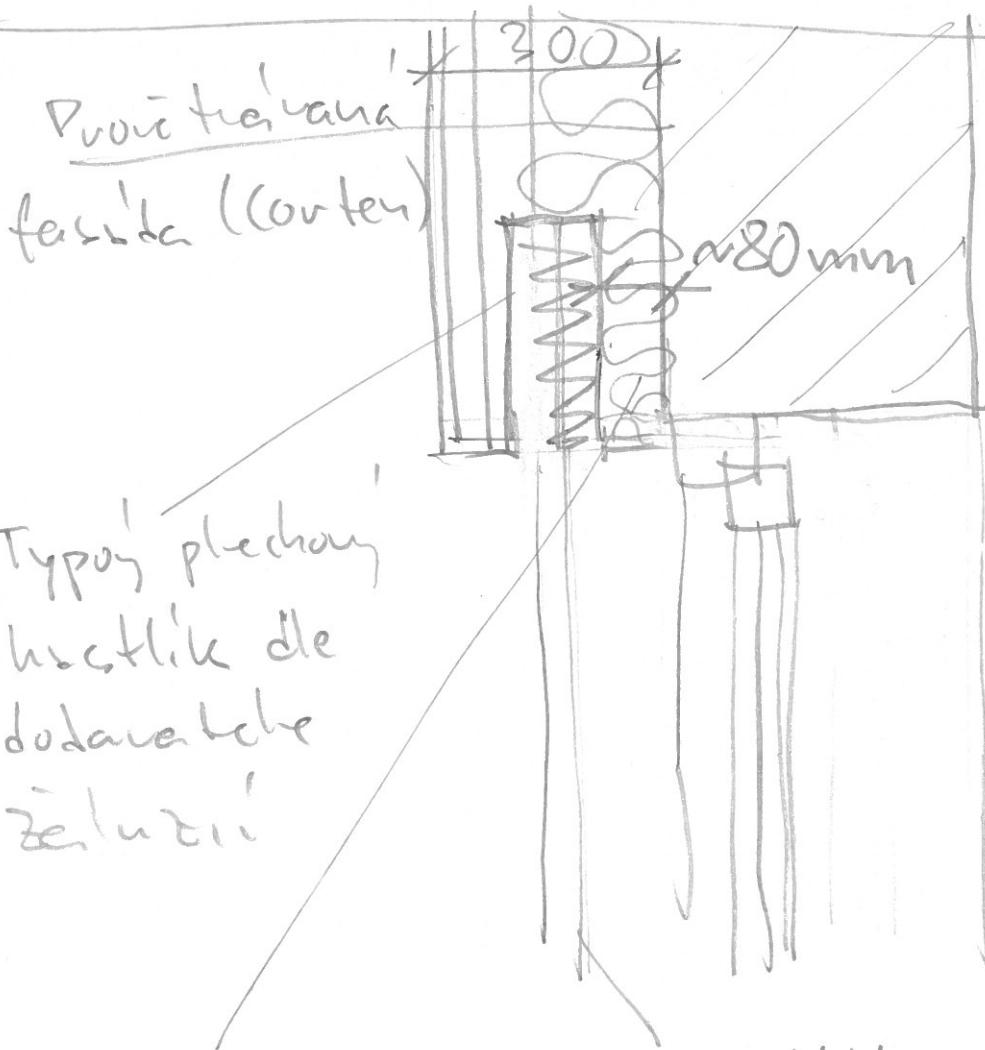 300
Provětrávaná
fasáda (Corten)
~80mm
Typový plechový
kastlík dle
dodavatele
žaluzií